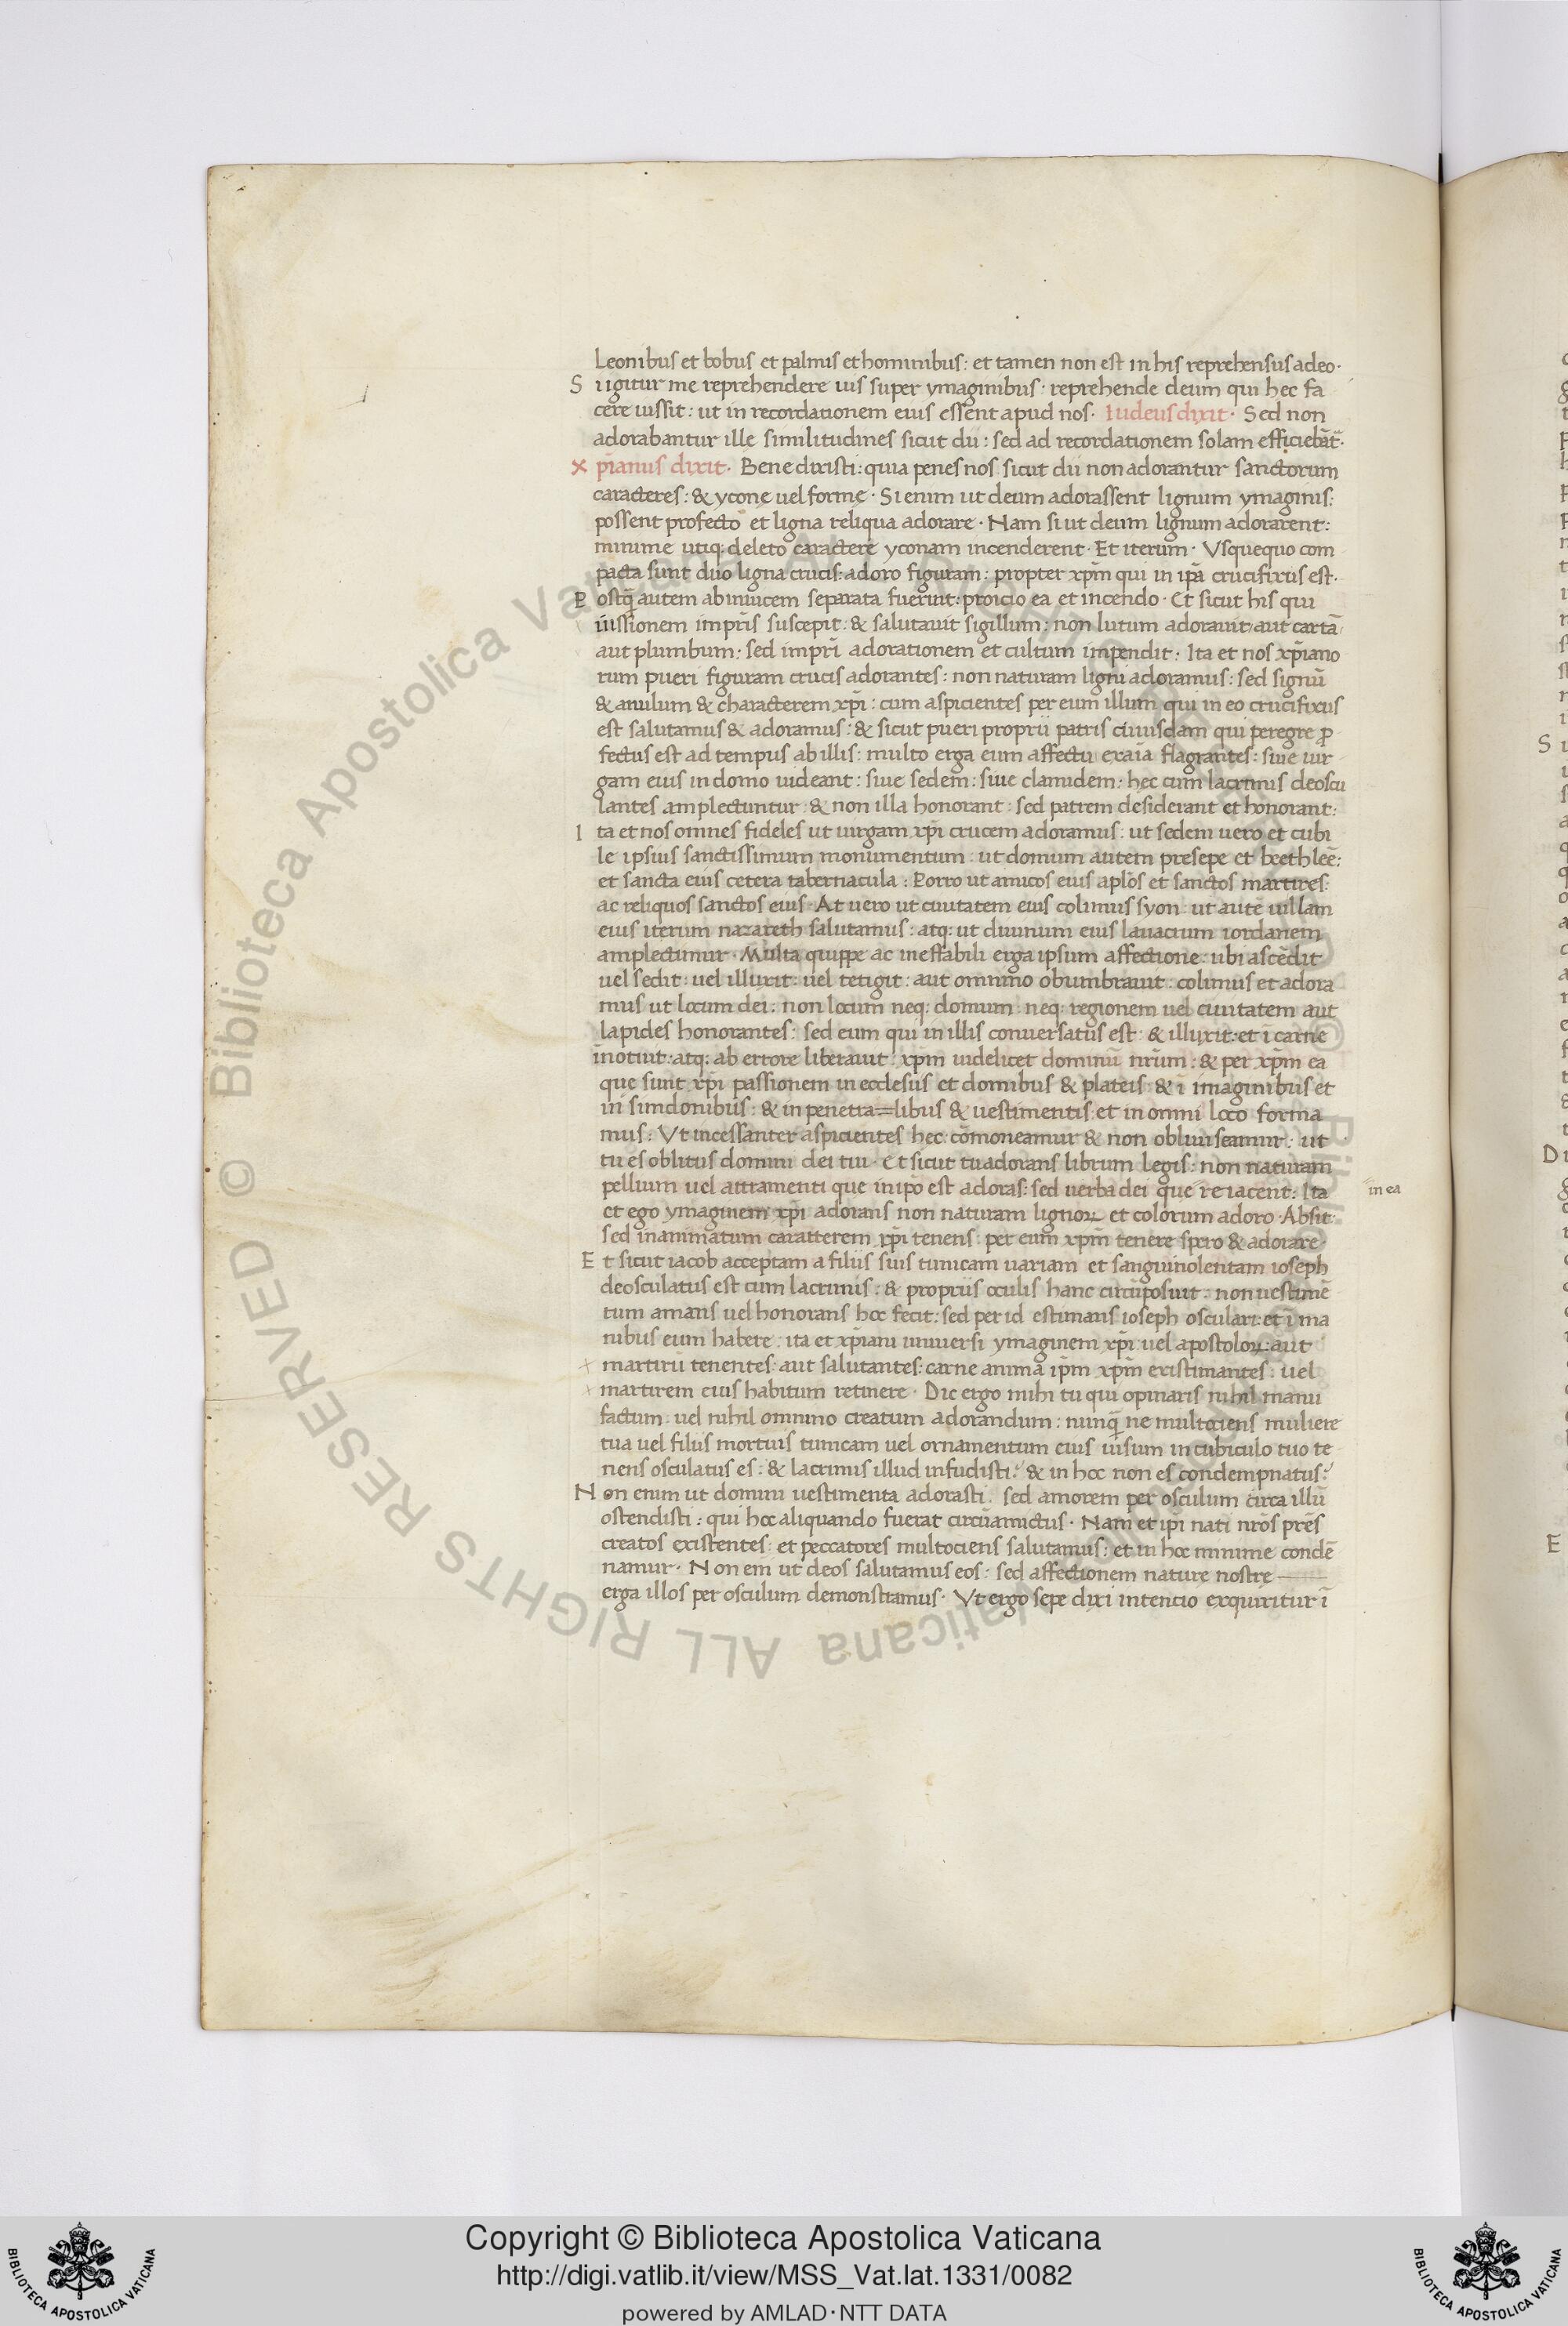 Leonibus et bobus et palmis et hominibus: et tamen non est in his reprehensus a deo.
Si igitur me reprehendere uis super ymaginibus: reprehende deum qui hec fa
cere iussit: ut in recordationem eius essent apud nos. Iudeus dixit. Sed non
adorabantur ille similitudines sicut dii: sed ad recordationem solam efficiebãt.
Xp̃ianus dixit. Bene dixisti: quia penes nos sicut dii non adorantur sanctorum
caracteres: & ycone uel forme. Si enim ut deum adorassent lignum ymaginis:
possent profecto et ligna reliqua adorare. Nam si ut deum lignum adorarent:
minime utiq; deleto caractere yconam incenderent. Et iterum. Vsquequo com
pacta sunt duo ligna crucis: adoro figuram: propter xp̃m qui in ip̃a crucifixus est.
Postq̃ autem abinuicem separata fuerint: proicio ea et incendo. Et sicut his qui
iussionem imp̃ris suscepit: & salutauit sigillum: non lutum adorauit aut cartã
aut plumbum: sed imp̃ri adorationem et cultum impendit: Ita et nos xp̃iano
rum pueri figuram crucis adorantes: non naturam ligni adoramus: sed signũ
& anulum & characterem xp̃i: cum aspicientes per eum illum qui in eo crucifixus
est salutamus & adoramus: & sicut pueri proprii patris cuiusdam qui peregre p
fectus est ad tempus ab illis: multo erga eum affectu ex aĩa flagrantes: siue uir
gam eius in domo uideant: siue sedem: siue clamidem: hec cum lacrimis deoscu
lantes amplectuntur: & non illa honorant: sed patrem desiderant et honorant:
Ita et nos omnes fideles ut uirgam xp̃i crucem adoramus: ut sedem uero et cubi
le ipsius sanctissimum monumentum: ut domum autem presepe et beethleẽ:
et sancta eius cetera tabernacula: Porro ut amicos eius apl̃os et sanctos martires:
ac reliquos sanctos eius. At uero ut ciuitatem eius colimus syon: ut autẽ uillam
eius iterum nazareth salutamus: atq; ut diuinum eius lauacrum iordanem
amplectimur. Multa quippe ac ineffabili erga ipsum affectione: ubi ascẽdit
uel sedit: uel illuxit: uel tetigit: aut omnino obumbrauit: colimus et adora
mus ut locum dei: non locum neq; domum: neq; regionem uel ciuitatem aut
lapides honorantes: sed eum qui in illis conuersatus est: & illuxit: et ĩ carne
ĩnotuit: atq; ab errore liberauit: xp̃m uidelicet dominũ nr̃um: & per xp̃m ea
que sunt xp̃i passionem in ecclesiis et domibus & plateis: & ĩ imaginibus et
in sindonibus: & in penetra=libus & uestimentis: et in omni loco forma
mus: Vt incessanter aspicientes hec: cõmoneamur & non obliuiscamur: ut
tu es oblitus domini dei tui. Et sicut tu adorans librum legis: non naturam
pellium uel attramenti que in ip̃o est adoras: sed uerba dei que re iacent: Ita
in ea
et ego ymaginem xp̃i adorans non naturam lignoꝝ et colorum adoro. Absit:
sed inanimatum caratterem xp̃i tenens: per eum xp̃m tenere spero & adorare.
Et sicut iacob acceptam a filiis suis tunicam uariam et sanguinolentam ioseph
deosculatus est cum lacrimis: & propriis oculis hanc circũposuit: non uestimẽ
tum amans uel honorans hoc fecit: sed per id estimans ioseph osculari: et ĩ ma
nibus eum habere: ita et xp̃iani uniuersi ymaginem xp̃i uel apostoloꝝ: aut
martirũ tenentes: aut salutantes: carne animã ip̃m xp̃m existimantes: uel
martirem eius habitum retinere. Dic ergo mihi tu qui opinaris nihil manu
factum: uel nihil omnino creatum adorandum: nunq̃ ne multociens muliere
tua uel filiis mortuis tunicam uel ornamentum eius uisum in cubiculo tuo te
nens osculatus es: & lacrimis illud infudisti: & in hoc non es condempnatus?
Non enim ut domini uestimenta adorasti: sed amorem per osculum circa illũ
ostendisti: qui hoc aliquando fuerat circũamictus. Nam et ip̃i nati nr̃os pr̃es
creatos existentes: et peccatores multociens salutamus: et in hoc minime condẽ
namur. Non eñi ut deos salutamus eos: sed affectionem nature nostre
erga illos per osculum demonstramus. Vt ergo sepe dixi intencio exquiritur ĩ
Copyright © Biblioteca Apostolica Vaticana
http://digi.vatlib.it/view/MSS_Vat.lat.1331/0082
powered by AMLAD·NTT DATA
© Biblioteca Apostolica Vaticana ALL RIGHTS RESERVED
BIBLIOTECA APOSTOLICA VATICANA
BIBLIOTECA APOSTOLICA VATICANA